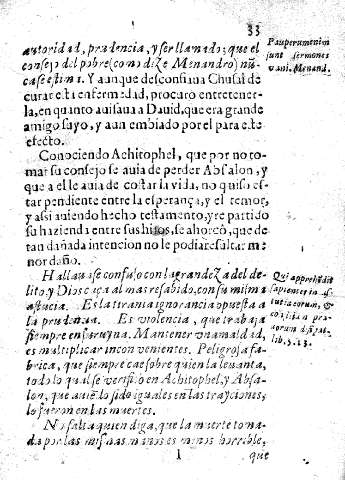 33
autoridad, prudencia, y ser llamado; que el
consejo del pobre (como dize Menandro) nũ-
ca se estima. Y aunque desconfiaua Chusai de
curar esta enfermedad, procurò entretener-
la, en quanto auisaua a Dauid, que era grande
amigo suyo, y aun embiado por el para este
efecto.
Conociendo Achitophel, que por no to-
mar su consejo se auia de perder Absalon, y
que a el le auia de costar la vida, no quiso es-
tar pendiente entre la esperança, y el temor,
y assi auiendo hecho testamento, y repartido
su hazienda entre sus hijos, se ahorcò, que de
tan dañada intencion no le podia resultar me
nor daño.
Hallauase confuso con la grandeza del de-
lito, y Dios caça al mas resabido con su misma
astucia. Es la tirania ignorancia opuesta a
la prudencia. Es violencia, que trabaja
siempre en su ruyna. Mantener vna maldad,
es multiplicar inconuenientes. Peligrosa fa-
brica, que siempre cae sobre quien la leuanta,
todo lo qual se verificò en Achitophel, y Absa-
lon, que auiẽdo sido iguales en las trayciones,
lo fueron en las muertes.
No falta quien diga, que la muerte toma-
da por las mismas manos es menos horrible,
1
que
Pauperum enim
sunt sermones
vani. Menand.
Qui apprehẽdit
sapientes in as-
tutia eorum, &
consilia pra-
uorum dissipat.
lib. 5. 13.